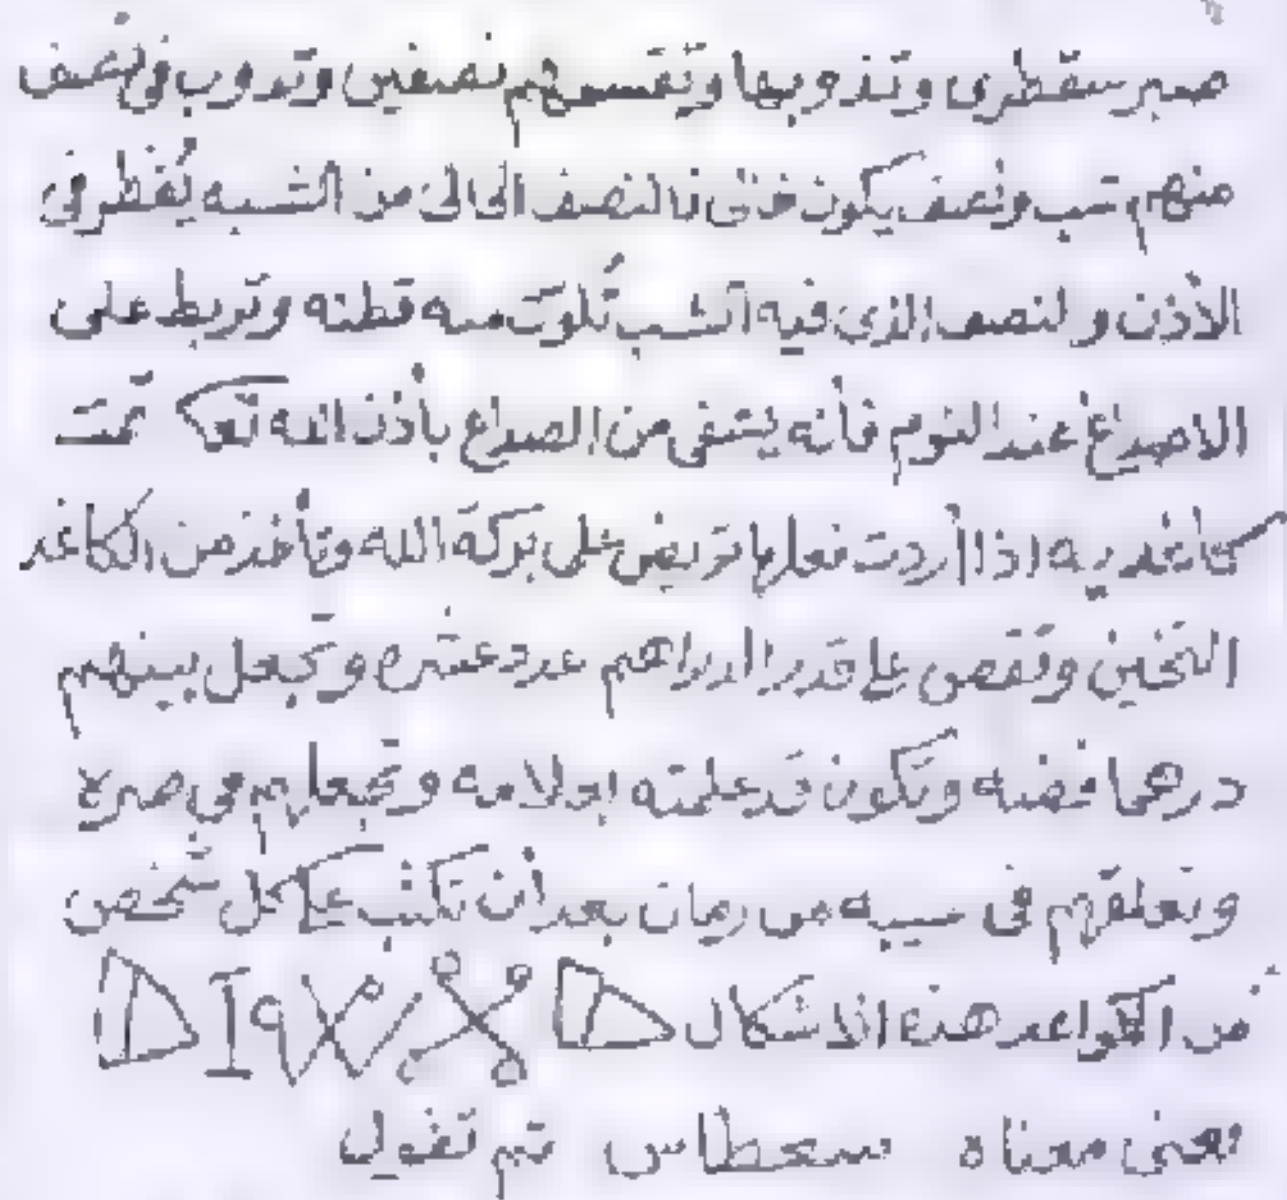 صبر سقطرى وتذوبها وتقسمهم نصفين وتدوب فى نصف
منهم شب ونصف يكون خالى فالنصف الخالى من الشبه يقطر فى
الأذن ولنصف الذى فيه الشب تلوت منه قطنه وتربط على
الاصداغ عند النوم فأنه يشفى من الصداع بأذن الله تعا تمت
كاغديه اذا أردت فعلها تريض على بركة الله وتأخذ من الكاغد
التخين وتقص على قدر الدراهم عدد عشره وتجعل بينهم
درهما فضه وتكون قد علمته بعلامه وتجعلهم فى صره
وتعلقهم فى سيبه من رمان بعد أن تكتب على كل شخص
من الكواغد هذه الاشكال
يعنى معناه سعطاس ثم تقول